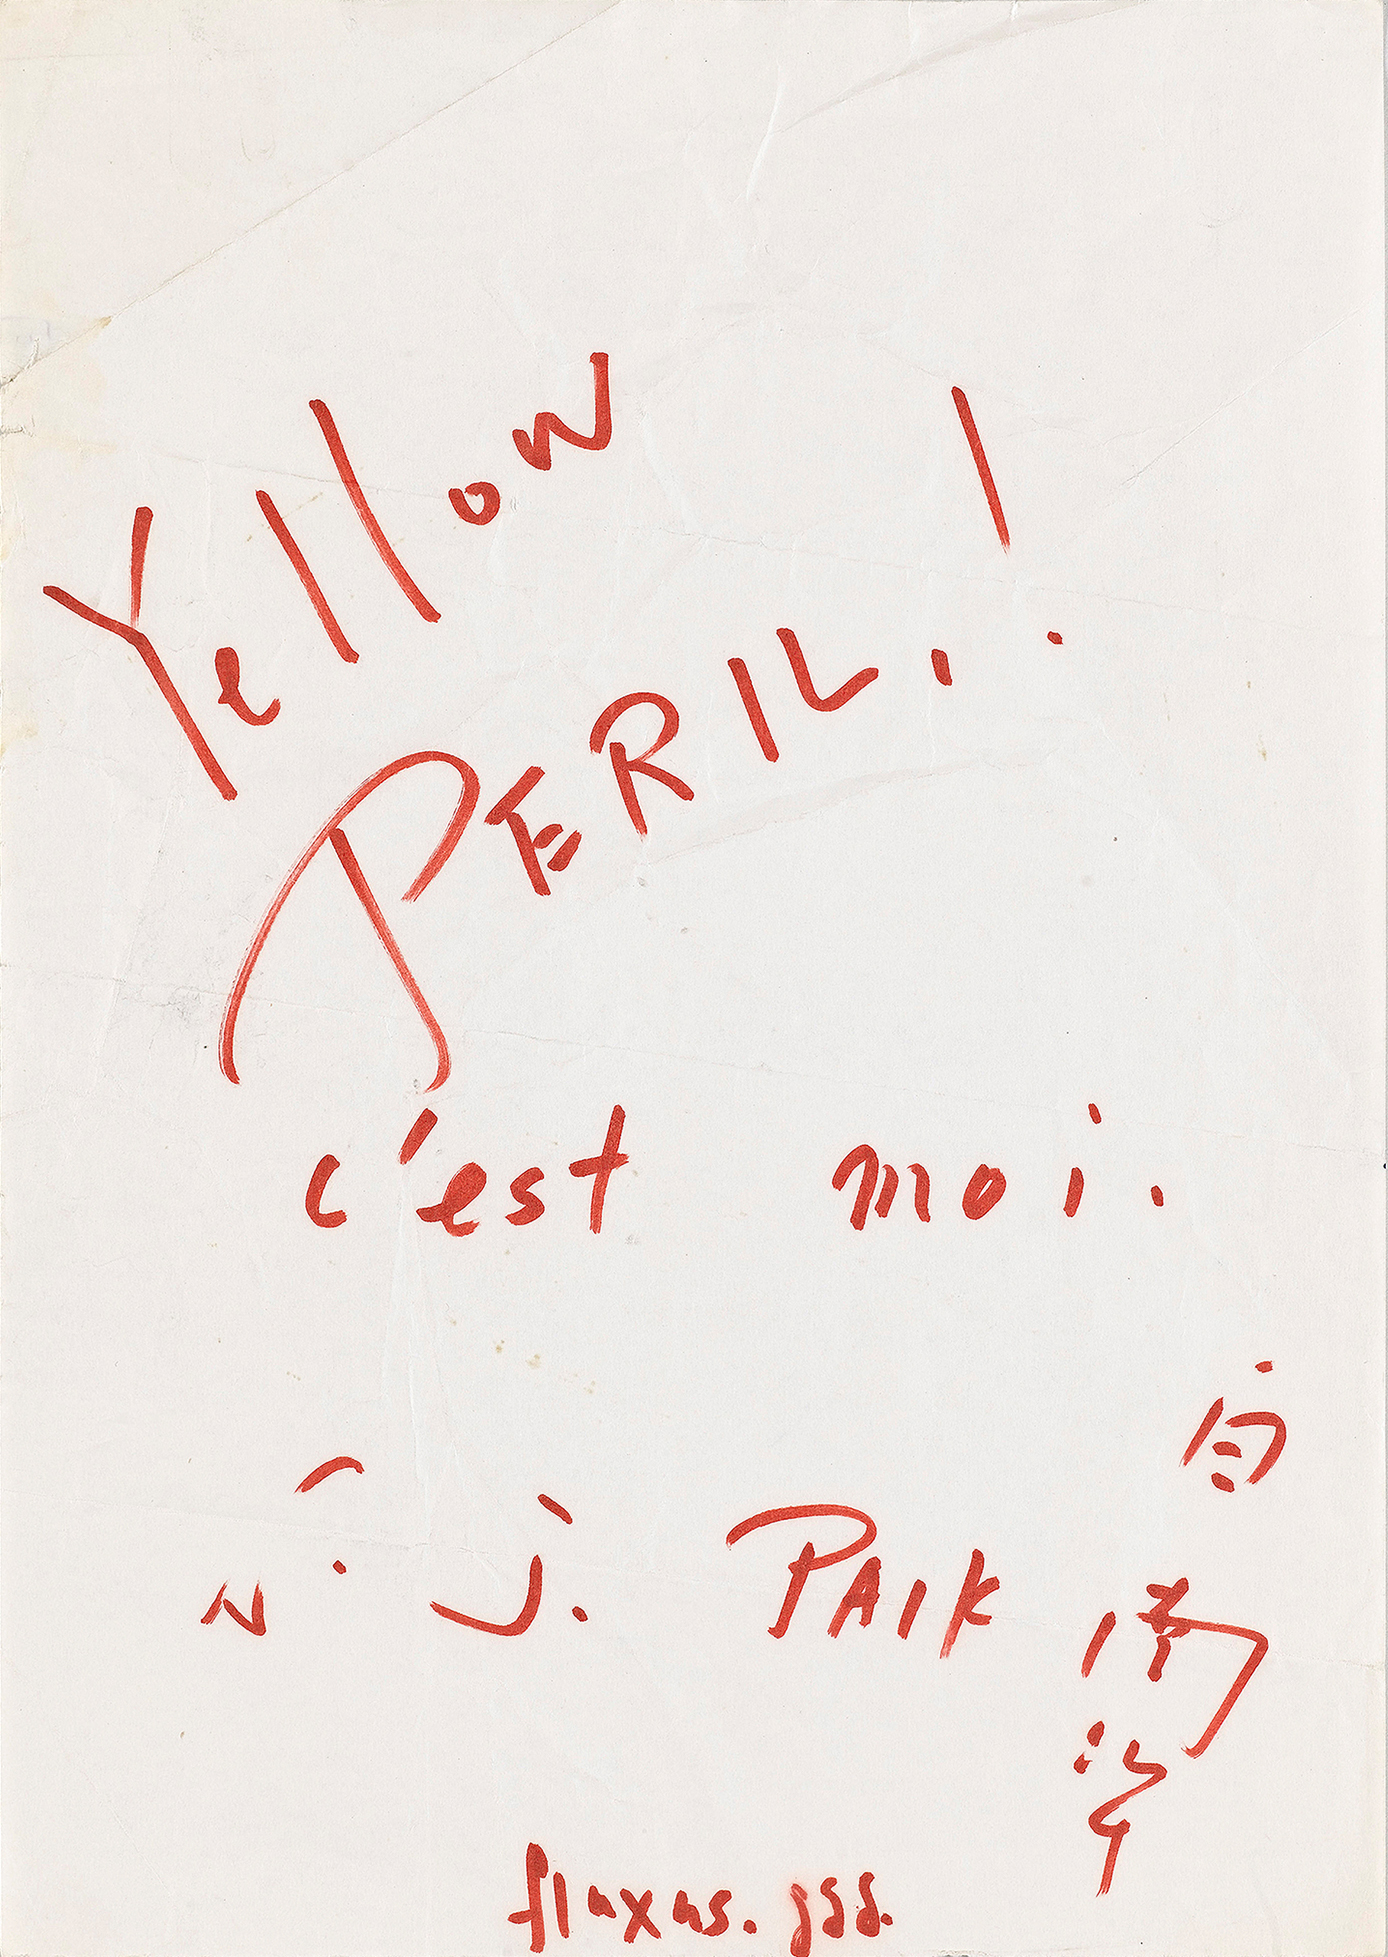 Yellow
PERIL.!
c'est moi.
N. J. PAIK
白
南
準
fluxus.